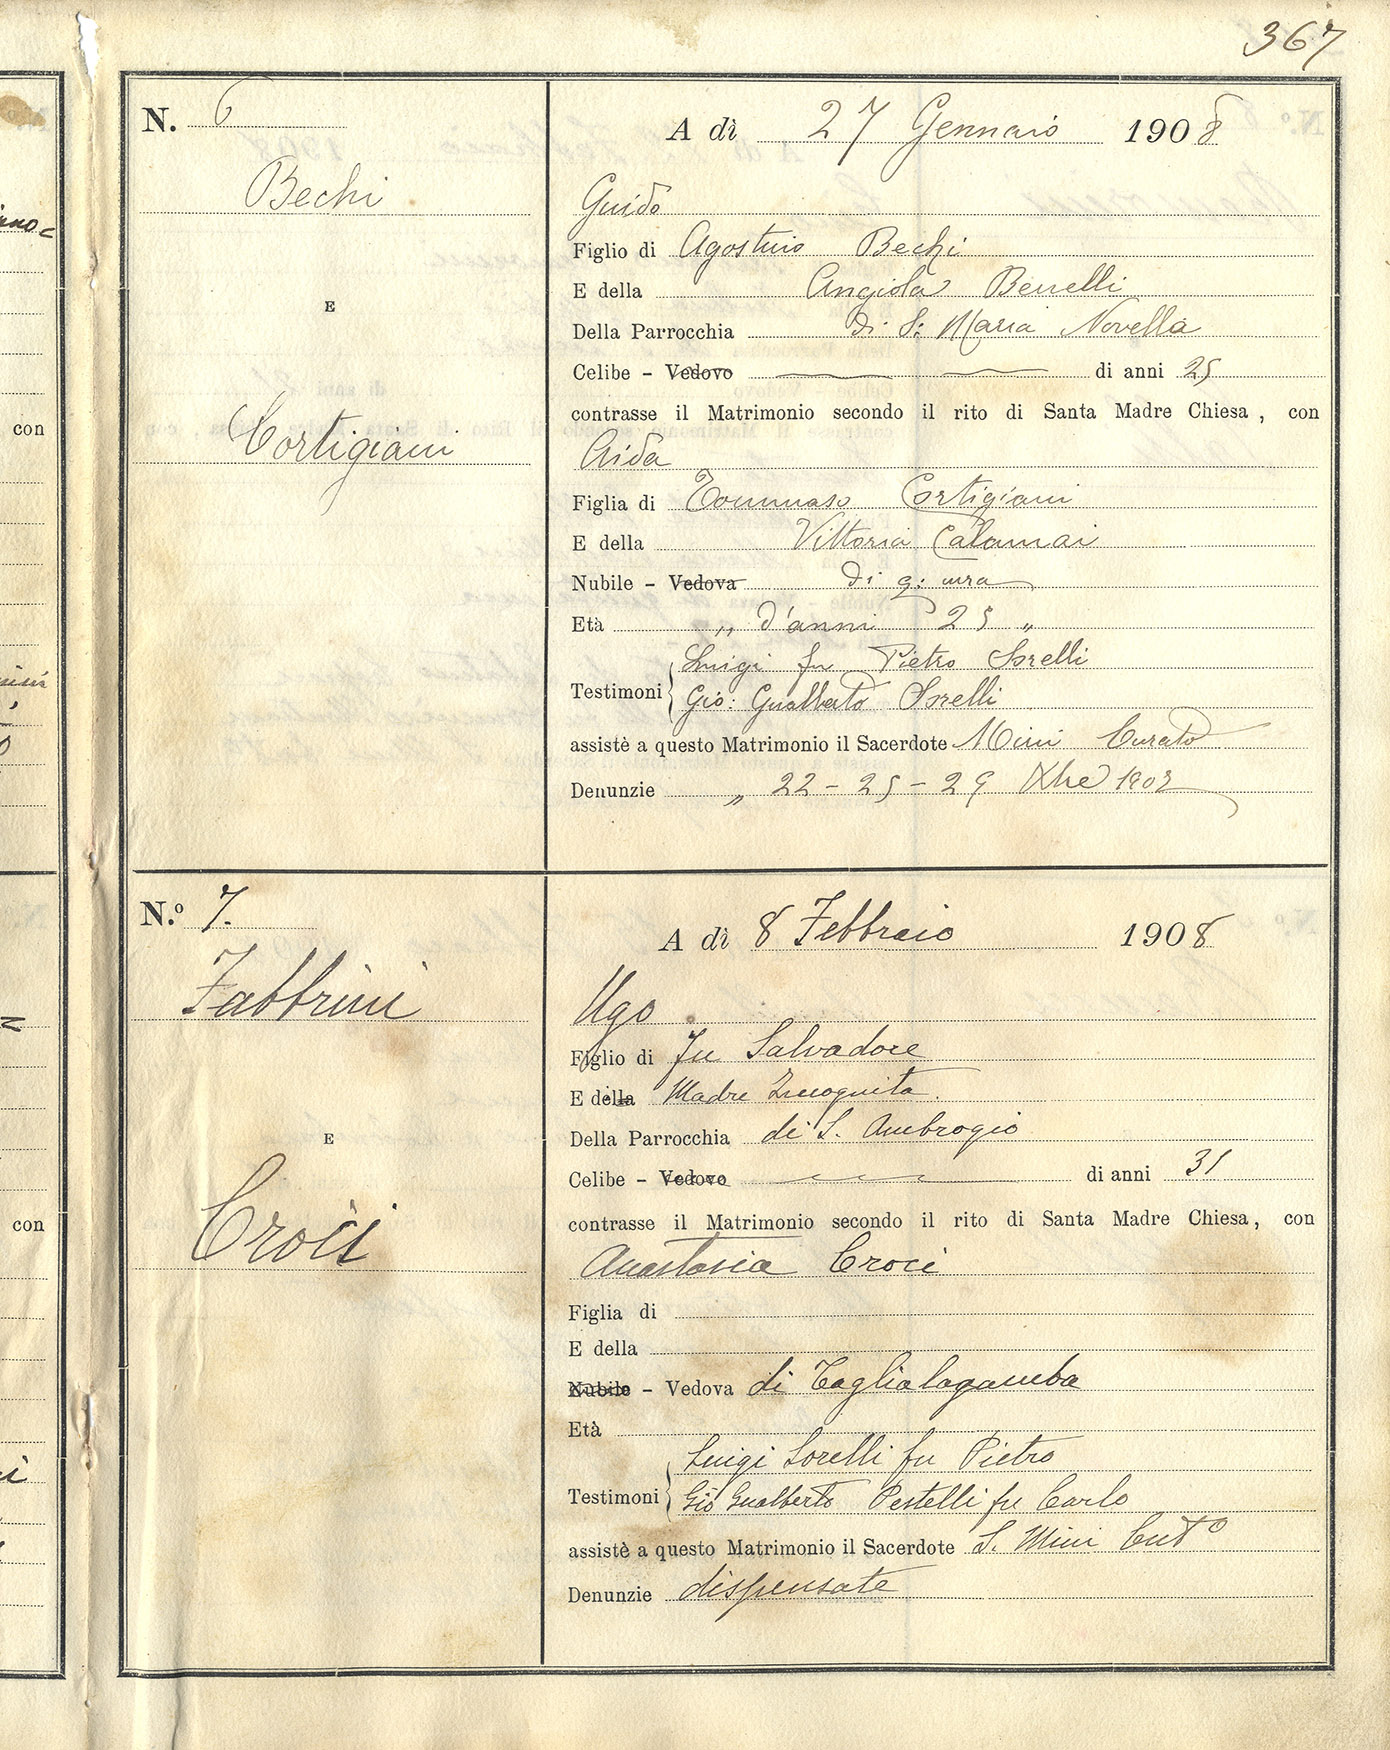 367
N. 6
Bechi
E
Cortigiani
A dì 27 Gennaio 1908
Guido
Figlio di Agostino Bechi
E della Angiola Benelli
Della Parrocchia di S: Maria Novella
Celibe - Vedovo di anni 25
contrasse il Matrimonio secondo il rito di Santa Madre Chiesa, con
Aida
Figlia di Tommaso Cortigiani
E della Vittoria Calamai
Nubile - Vedova di q: cura
Età „ d'anni 25 „
Luigi fu Pietro Sorelli
Testimoni
Gio: Gualberto Sorelli
assistè a questo Matrimonio il Sacerdote Mini Curato
Denunzie „ 22 - 25 - 29 Xbre 1907
N.º 7.
Fabbrini
E
Croci
A dì 8 Febbraio 1908
Ugo
Figlio di fu Salvadore
E della Madre Incognita.
Della Parrocchia di S. Ambrogio
Celibe - Vedovo di anni 31
contrasse il Matrimonio secondo il rito di Santa Madre Chiesa, con
Anastasia Croci
Figlia di
E della
Nubile - Vedova di Taglialagamba
Età
Luigi Sorelli fu Pietro
Testimoni
Gio Gualberto Pestelli fu Carlo
assistè a questo Matrimonio il Sacerdote S. Mini Cur̃to
Denunzie dispensate
con
con